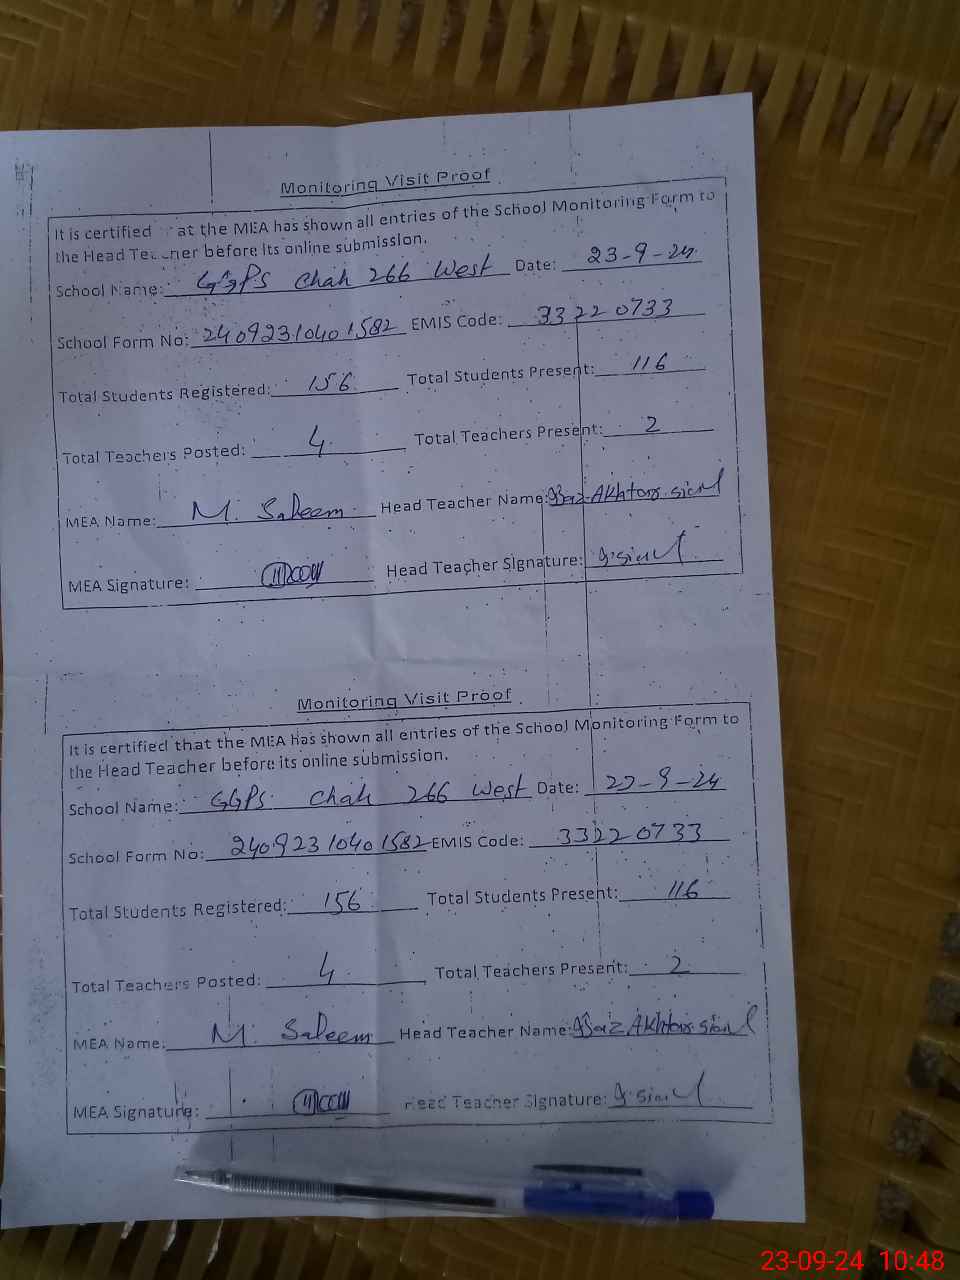 Monitoring Visit Proof
It is certified at the MEA has shown all entries of the School Monitoring Form to
the Head Teacher before its online submission.
School Name: GGPS Chah 266 West Date: 23-9-24
School Form No: 24092310401582 EMIS Code: 33220733
Total Students Registered: 156 Total Students Present: 116
Total Teachers Posted: 4 Total Teachers Present: 2
MEA Name: M. Saleem Head Teacher Name: Akhtar sial
MEA Signature: Head Teacher Signature:
Monitoring Visit Proof
It is certified that the MEA has shown all entries of the School Monitoring Form to
the Head Teacher before its online submission.
School Name: GGPS Chah 266 West Date: 23-9-24
School Form No: 24092310401582 EMIS Code: 33220733
Total Students Registered: 156 Total Students Present: 116
Total Teachers Posted: 4 Total Teachers Present: 2
MEA Name: M. Saleem Head Teacher Name: Akhtar sial
MEA Signature: Head Teacher Signature:
23-09-24 10:48